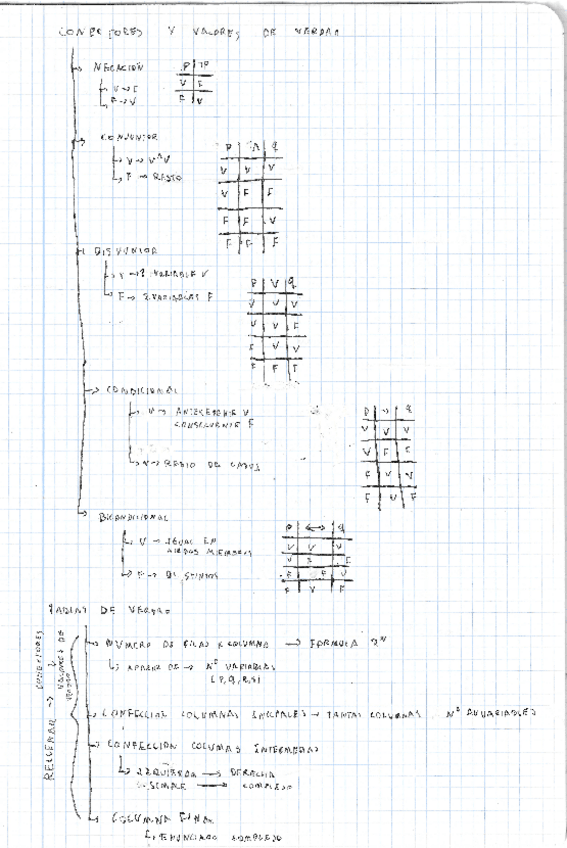 CONECTORES Y VALORES DE VERDAD
NEGACIÓN
V → F
F → V
P ¬P
V F
F V
CONJUNTOR
V → V ∧ V
F → RESTO
P ∧ q
V V V
V F F
F F V
F F F
DISYUNTOR
V → 1 VARIABLE V
F → 2 VARIABLES F
P V q
V V V
V V F
F V V
F F F
CONDICIONAL
ANTECEDENTE V
CONSECUENTE F
V → RESTO DE CASOS
P → q
V V V
V F F
F V V
F V F
BICONDICIONAL
V → IGUAL
AMBOS MIEMBROS
F → DISTINTOS
P ↔ q
V V V
V F F
F F V
F V F
TABLAS DE VERDAD
RELLENAR → CONECTORES
VALORES DE
NÚMERO DE FILAS X COLUMNA → FORMULA 2ᴺ
APARIR DE → Nº VARIABLES
(P, Q, R, S)
CONFECCION COLUMNAS INICIALES → TANTAS COLUMNAS Nº VARIABLES
CONFECCION COLUMNAS INTERMEDIAS
IZQUIERDA → DERECHA
SIMPLE → COMPLEJO
COLUMNA FINAL
ENUNCIADO COMPLEJO